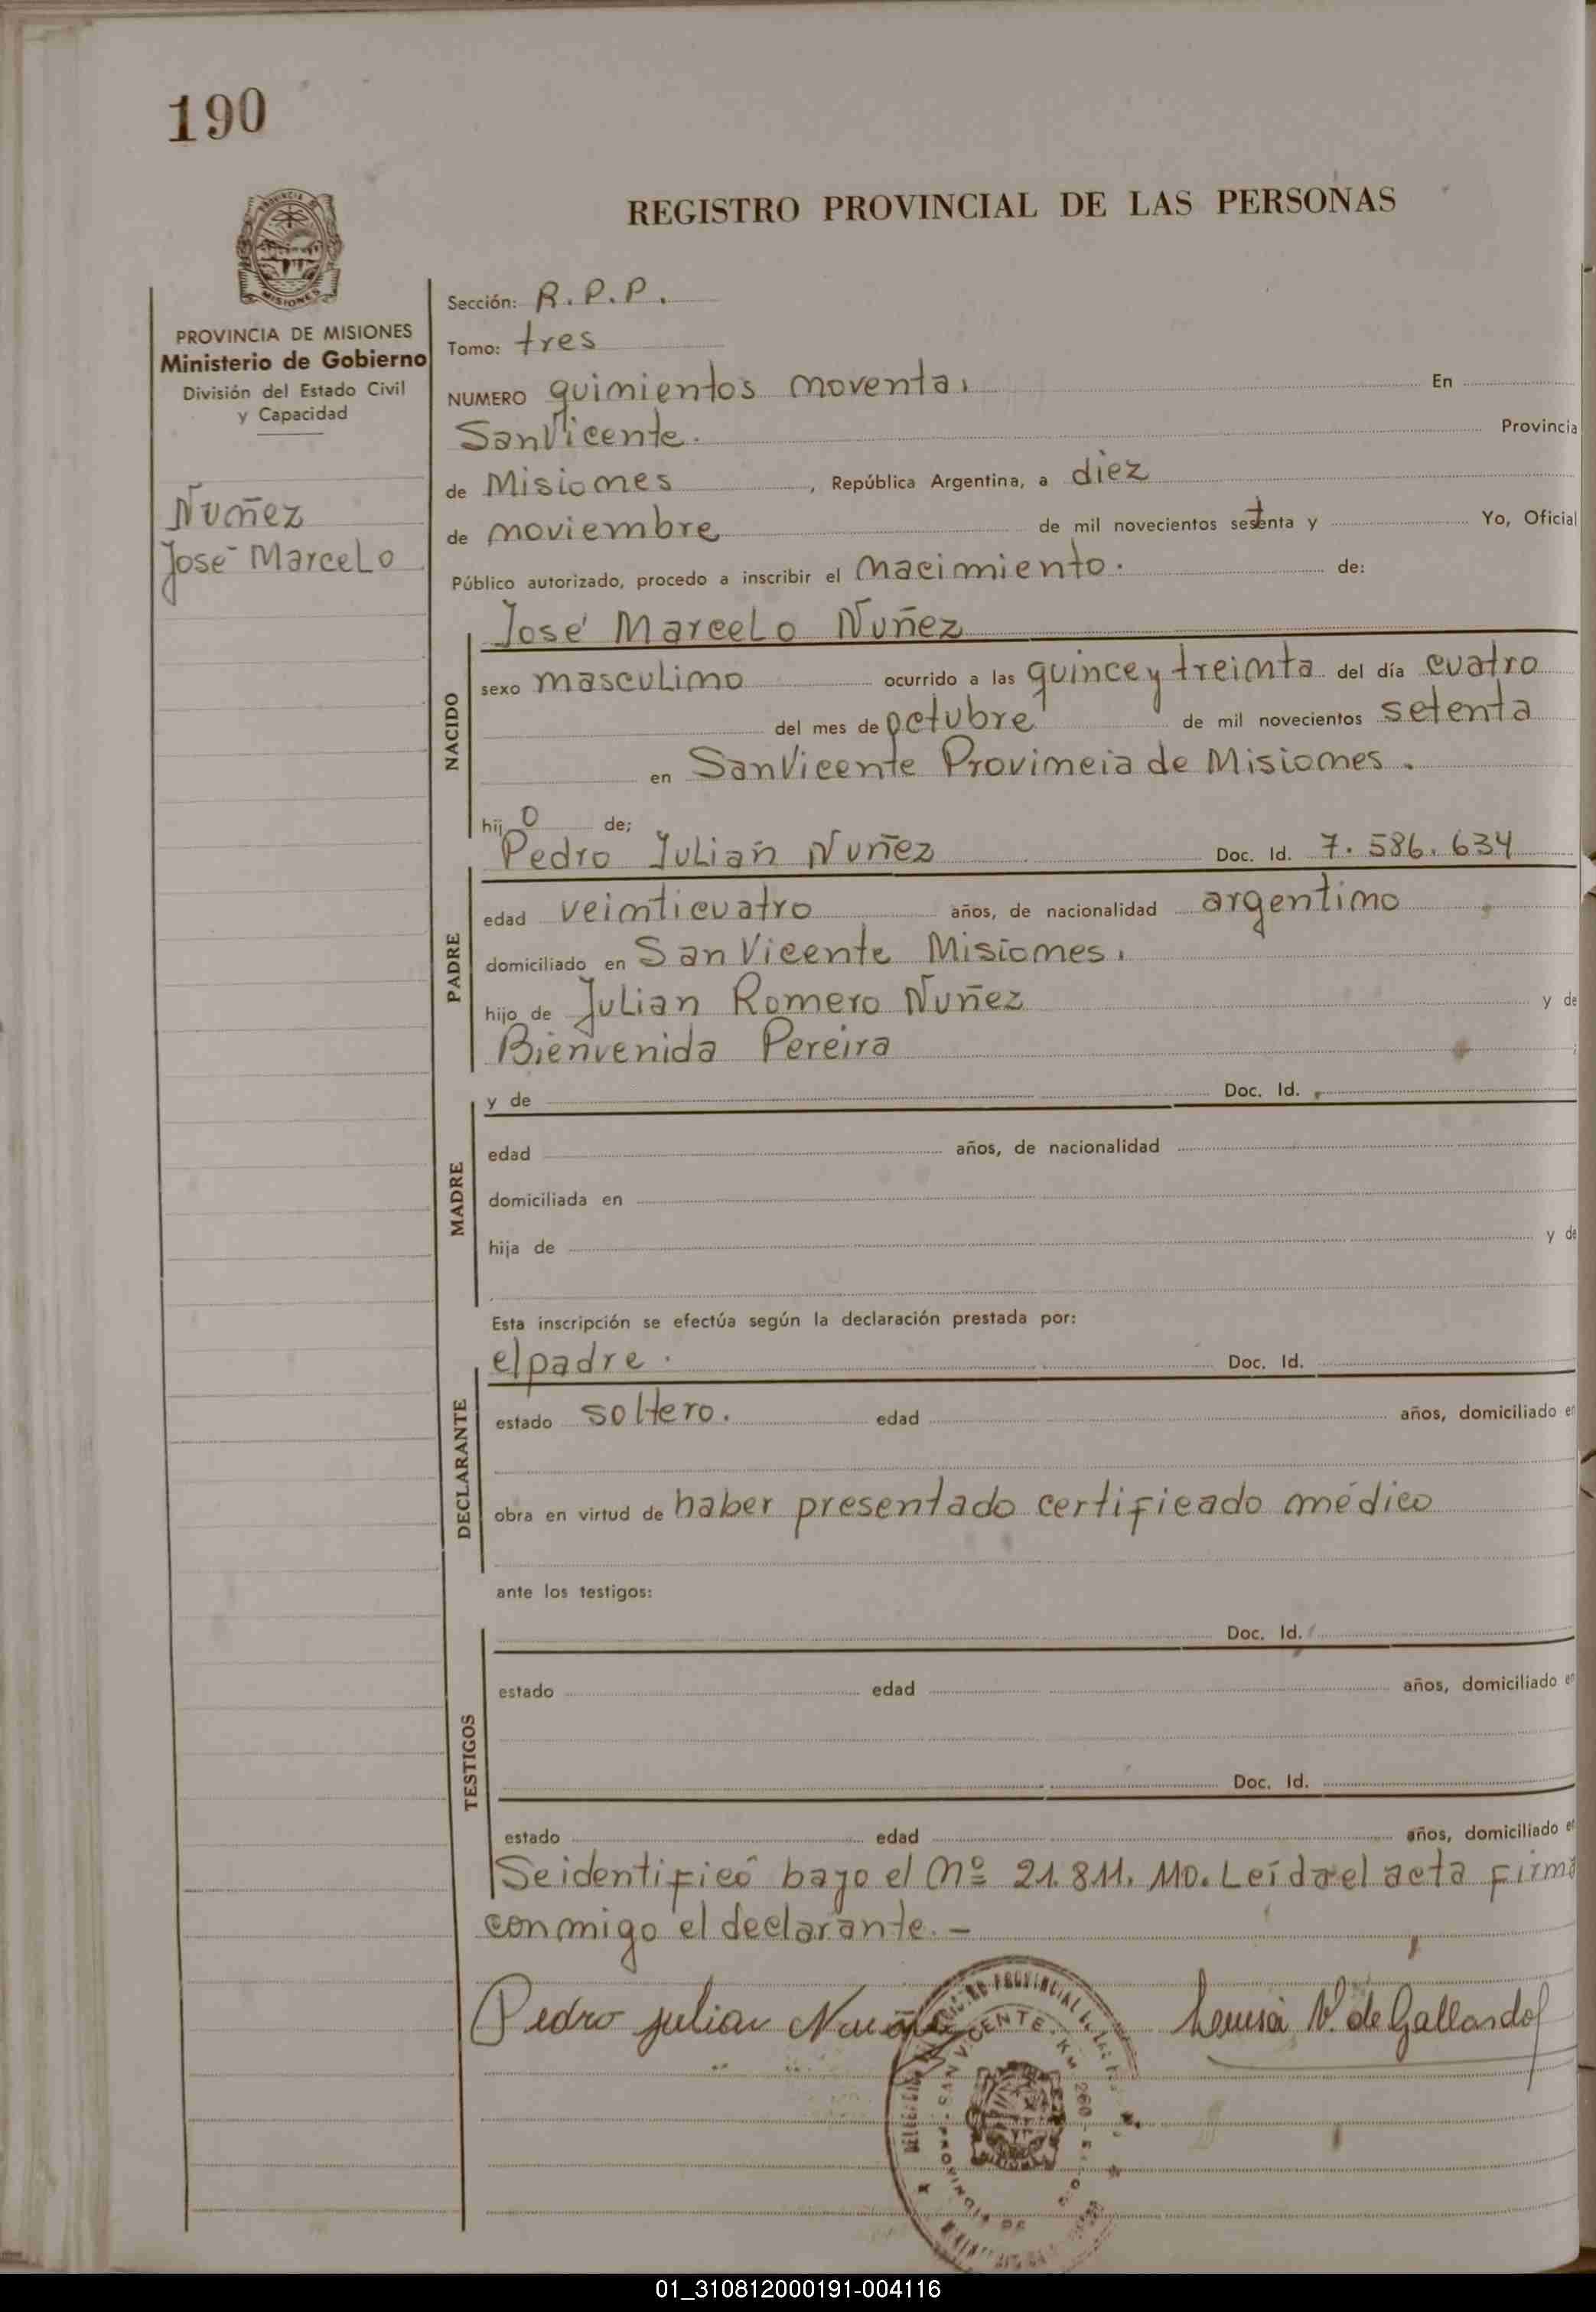 190
REGISTRO PROVINCIAL DE LAS PERSONAS
PROVINCIA DE MISIONES
Ministerio de Gobierno
División del Estado Civil
y Capacidad
Nuñez
José Marcelo
Sección: R.P.P.
Tomo: tres
NUMERO quinientos noventa. En
San Vicente. Provincia
de Misiones, República Argentina, a diez
de noviembre de mil novecientos setenta y Yo, Oficial
Público autorizado, procedo a inscribir el nacimiento. de:
José Marcelo Nuñez
NACIDO
sexo masculino ocurrido a las quince y treinta del día cuatro
del mes de octubre de mil novecientos setenta
en San Vicente Provincia de Misiones.
hijo de;
Pedro Julián Nuñez Doc. Id. 7.586.634
PADRE
edad veinticuatro años, de nacionalidad argentino
domiciliado en San Vicente Misiones.
hijo de Julian Romero Nuñez y de
Bienvenida Pereira
MADRE
y de Doc. Id.
edad años, de nacionalidad
domiciliada en
hija de y de
Esta inscripción se efectúa según la declaración prestada por:
DECLARANTE
el padre. Doc. Id.
estado soltero. edad años, domiciliado en
obra en virtud de haber presentado certificado médico
ante los testigos:
TESTIGOS
Doc. Id.
estado edad años, domiciliado en
Doc. Id.
estado edad años, domiciliado en
Se identificó bajo el Nº 21.811.110. Leída el acta firma
conmigo el declarante.-
Pedro julian Nuñez
V. de Gallardo
SAN VICENTE - KM 260
01_310812000191-004116